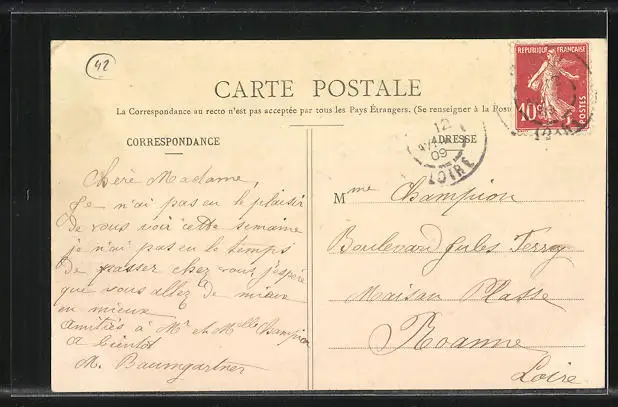 42
CARTE POSTALE
La Correspondance au recto n'est pas acceptée par tous les Pays Étrangers. (Se renseigner à la Poste
REPUBLIQUE FRANÇAISE
10c
POSTES
CORRESPONDANCE
ADRESSE
12
09
LOIRE
Chère Madame,
Je n'ai pas eu le plaisir
de vous voir cette semaine
je n'ai pas eu le temps
de passer chez vous j'espère
que vous allez de mieux
en mieux
amitiés à Mr et Mlle Champion
a bientôt
M. Baumgartner
Mme Champion
Boulevard Jules Ferry
Maison Plasse
Roanne
Loire